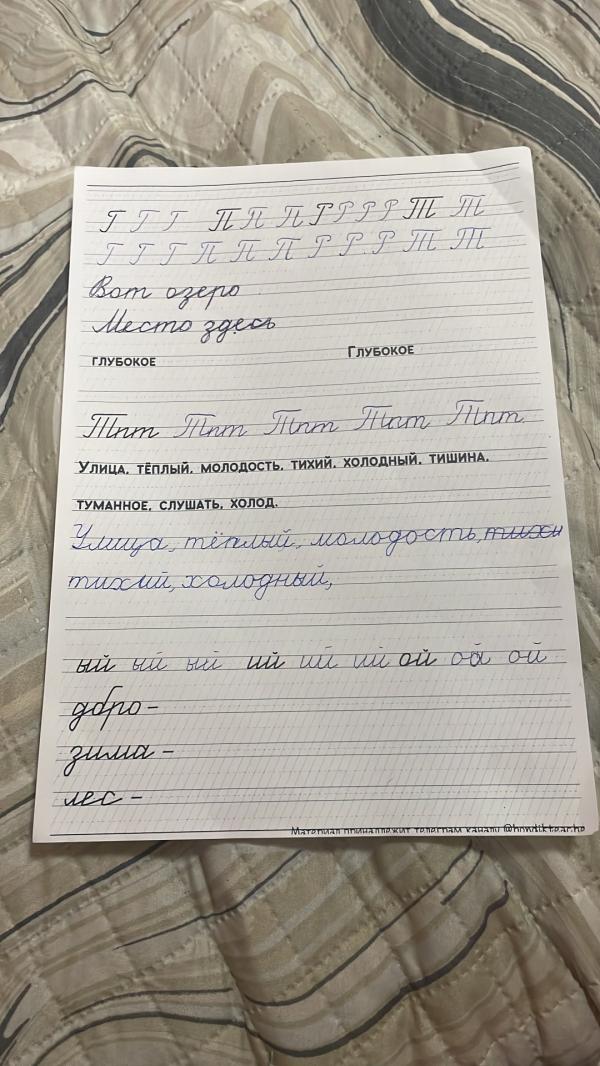 Г Г Г П П П Р Р Р Р Т Т
Г Г Г П П П Р Р Р Т Т
Вот озеро
Место здесь
глубокое Глубокое
Тпт Тпт Тпт Тпт Тпт
Улица, тёплый, молодость, тихий, холодный, тишина,
туманное, слушать, холод.
Улица, тёплый, молодость, тихи
тихий, холодный,
ый ый ый ий ий ий ой ой ой
добро –
зима –
лес –
Материал принадлежит телеграм каналу